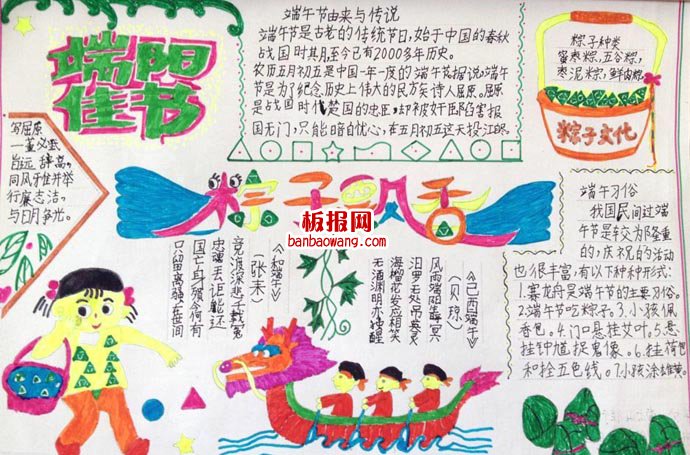 端阳
佳节
端午节由来与传说
端午节是古老的传统节日,始于中国的春秋
战国时其月,至今已有2000多年历史。
农历五月初五是中国一年一度的端午节,据说端午
节是为了纪念历史上伟大的民方矣诗人屈原。屈原
是战国时代楚国的忠臣,却被奸臣陷害报
国无门,只能暗自忧心,在五月初五这天投江
粽子种类
蜜枣粽,五谷粽,
枣泥粽,鲜肉粽
粽子文化
写屈原
一董义
旨远 辞高,
同风牙住并举
行廉志洁,
与日月争光。
粽子飘香
板报网
banbaowang.com
《和端午》
(张耒)
竞渡深悲千载冤
忠魂去讵能还
国亡身殒今何有
只留离骚在世间
《己酉端午》
(贝琼)
风雨端阳生晦冥
汨罗无处吊英灵
海榴花发应相笑
无酒渊明亦独醒
端午习俗
我国民间过端
午节是较为隆重
的,庆祝的活动
也很丰富,有以下种种形式:
1.赛龙舟是端午节的主要习俗。
2.端午节吃粽子。3.小孩佩
香包。4.门口悬挂艾叶。5.悬
挂钟馗捉鬼像。6.挂荷包
和拴五色线。7.小孩涂雄黄。